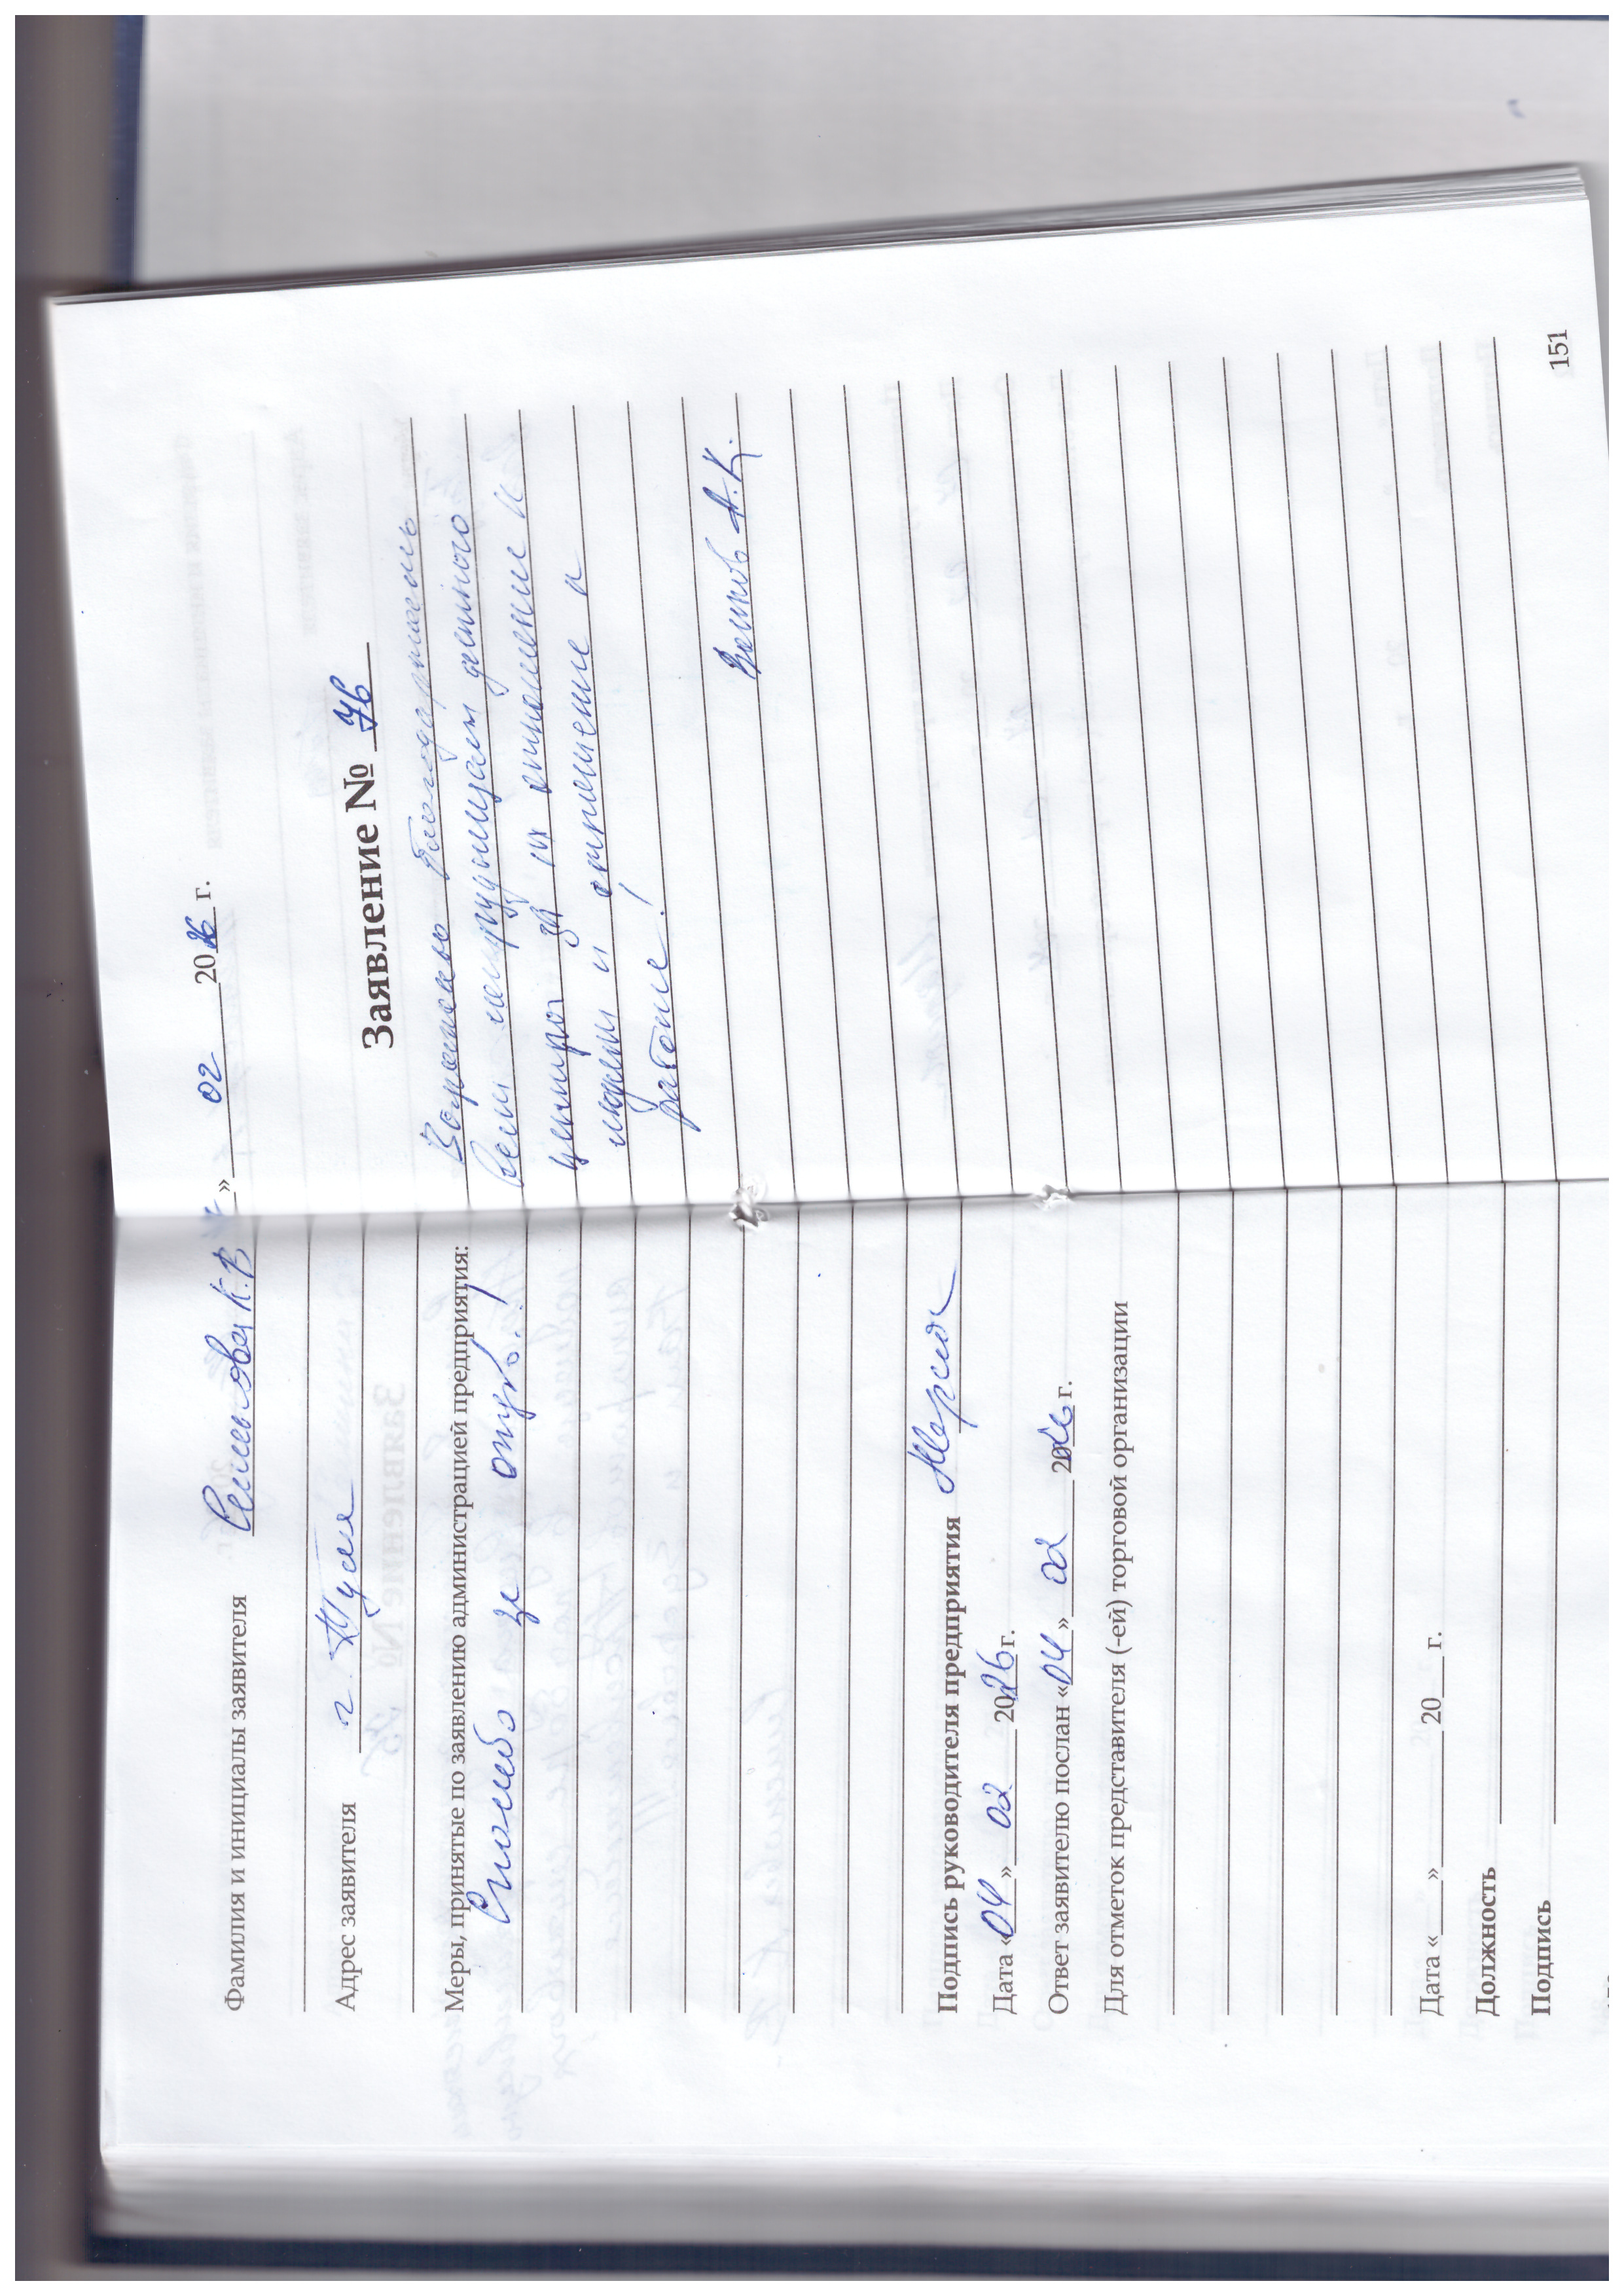 Фамилия и инициалы заявителя Селиверстова К.В
Адрес заявителя г. Тула
Меры, принятые по заявлению администрацией предприятия:
Спасибо за отзыв!
Подпись руководителя предприятия
Дата «04» 02 2026 г.
Ответ заявителю послан «04» 02 2026 г.
Для отметок представителя (-ей) торговой организации
Дата «___» ______ 20___ г.
Должность
Подпись
» 02 2026 г.
Заявление № 76
Выражаю благодарность
всем сотрудницам данного
центра за их отношение к
людям и отношение к
работе!
А.К.
151